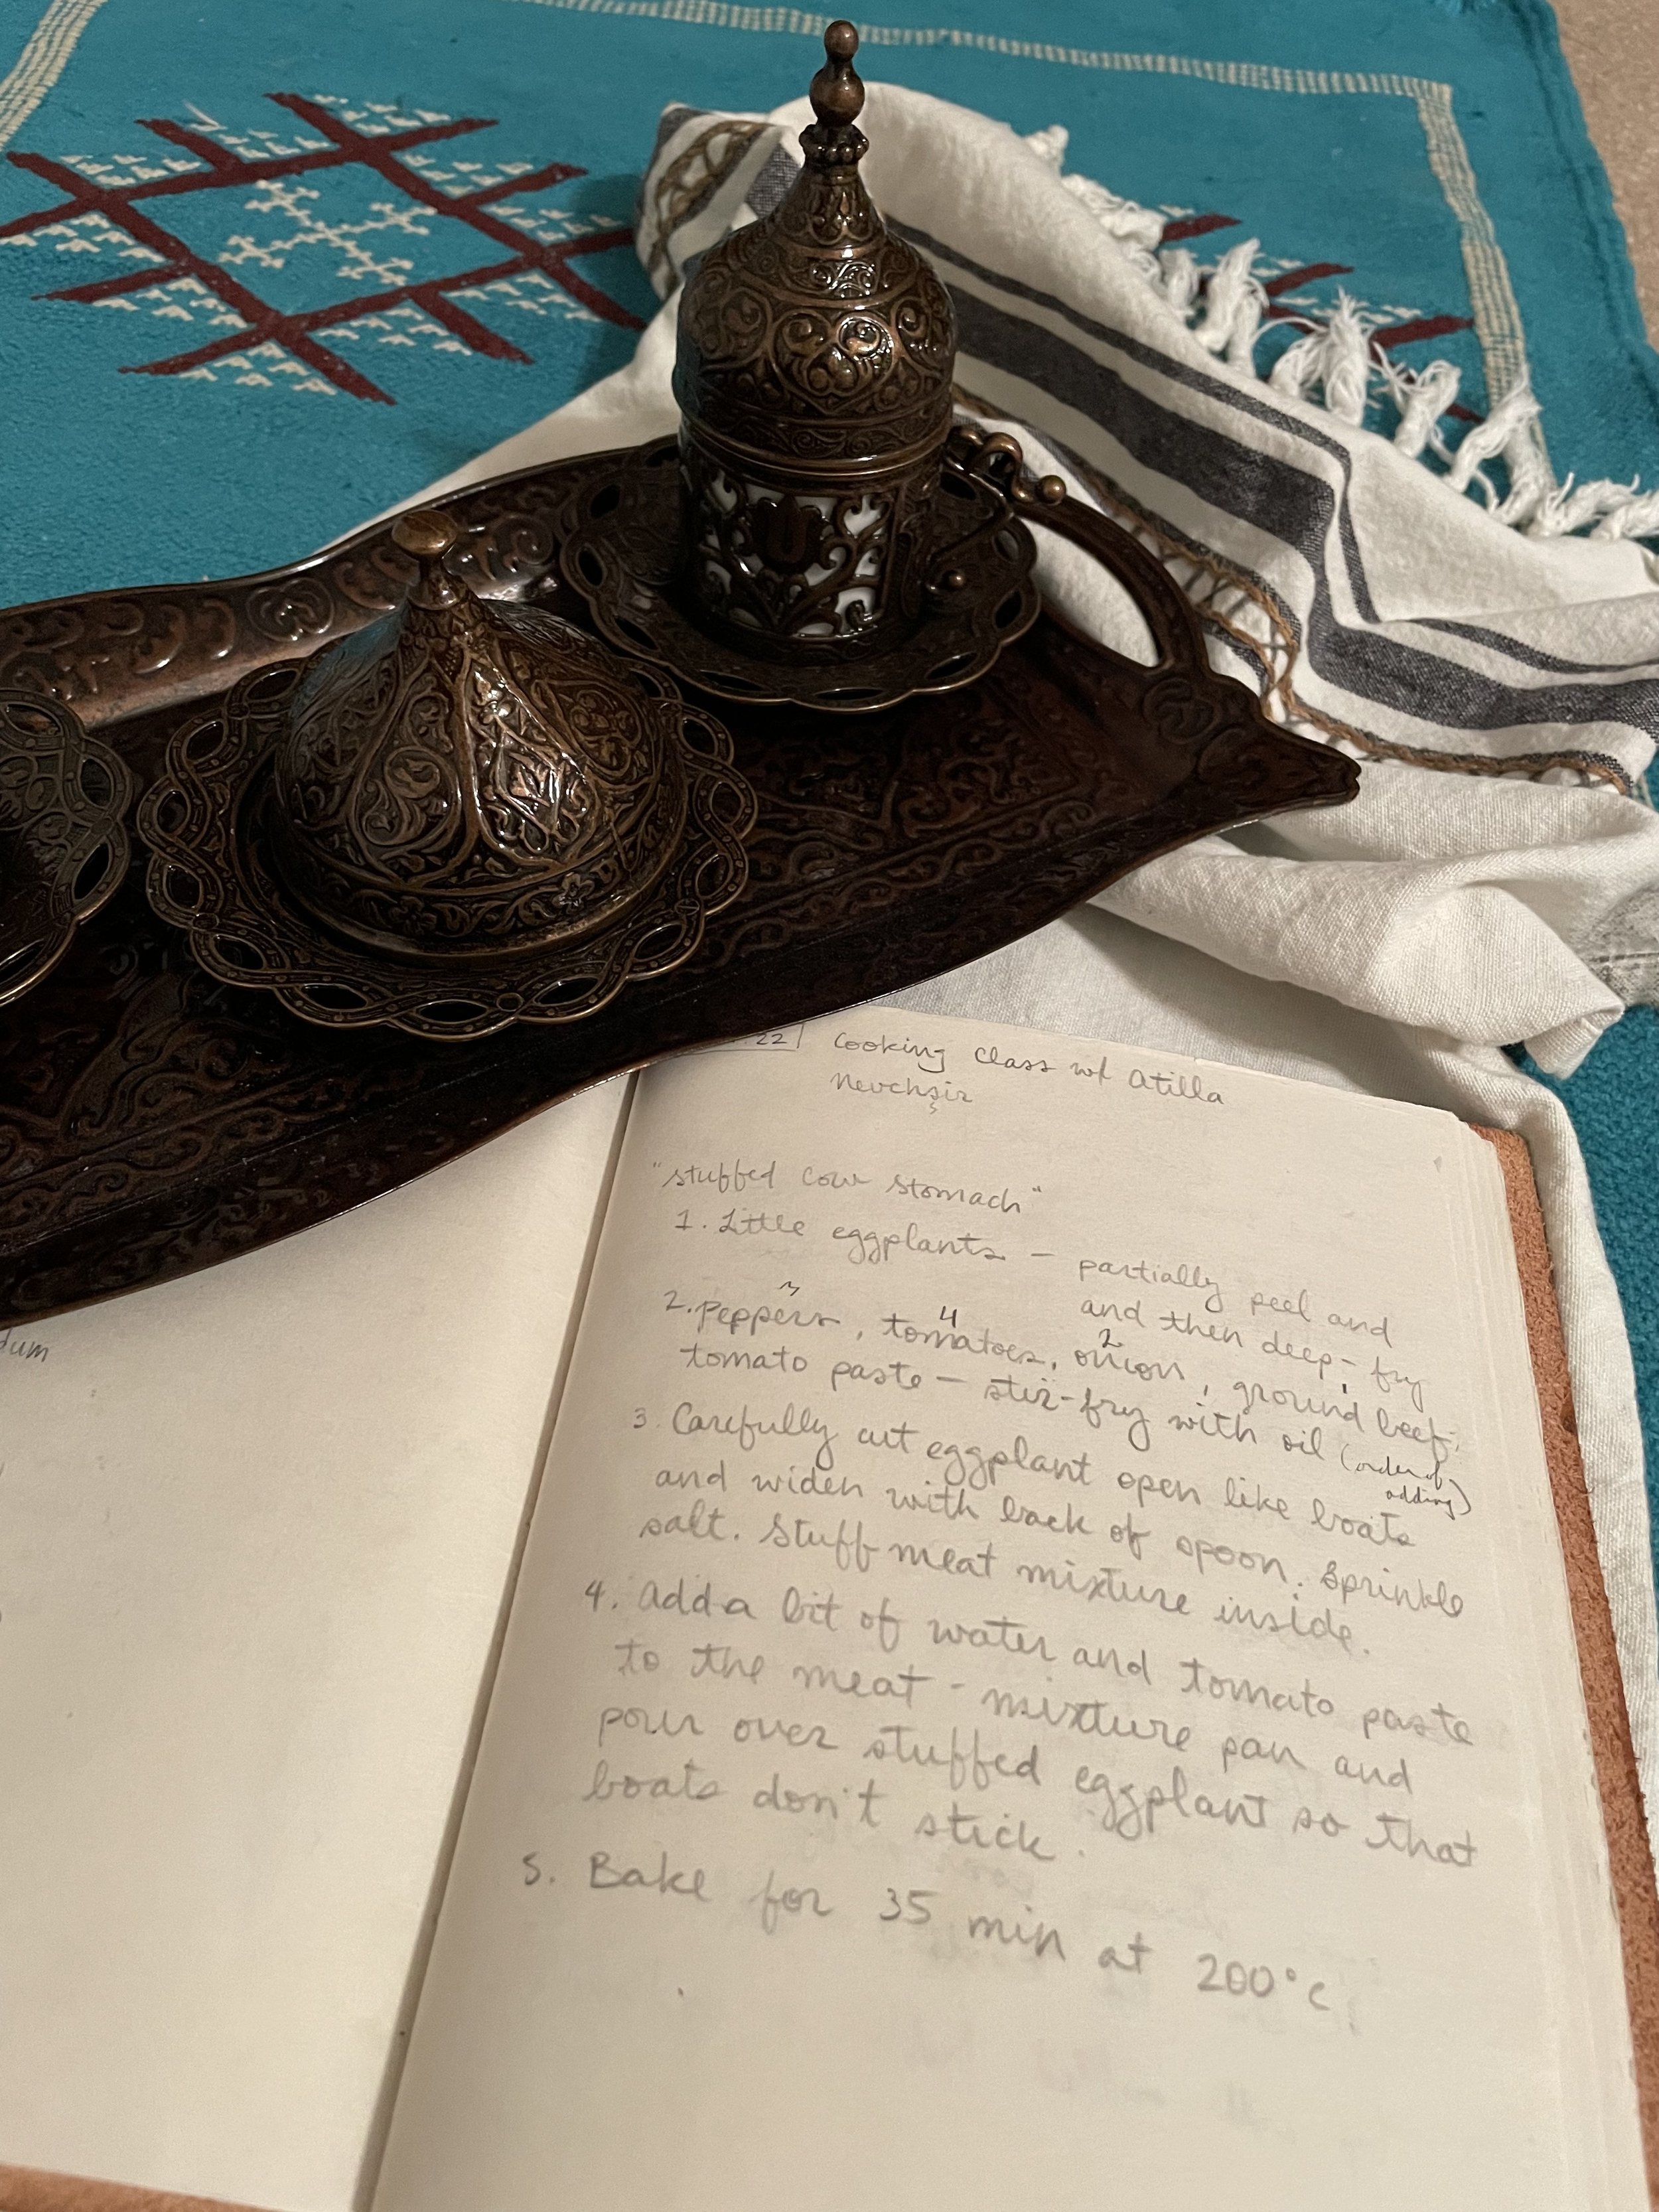 .22
Cooking Class w/ Atilla
Nevchşir
"stuffed cow stomach"
1. Little eggplants – partially peel and
and then deep-fry
2. peppers 3, tomatoes 4, onion 2, ground beef 1,
tomato paste – stir-fry with oil (order of
adding)
3. Carefully cut eggplant open like boats
and widen with back of spoon. Sprinkle
salt. Stuff meat mixture inside.
4. Add a bit of water and tomato paste
to the meat-mixture pan and
pour over stuffed eggplant so that
boats don't stick.
5. Bake for 35 min at 200°C
dum